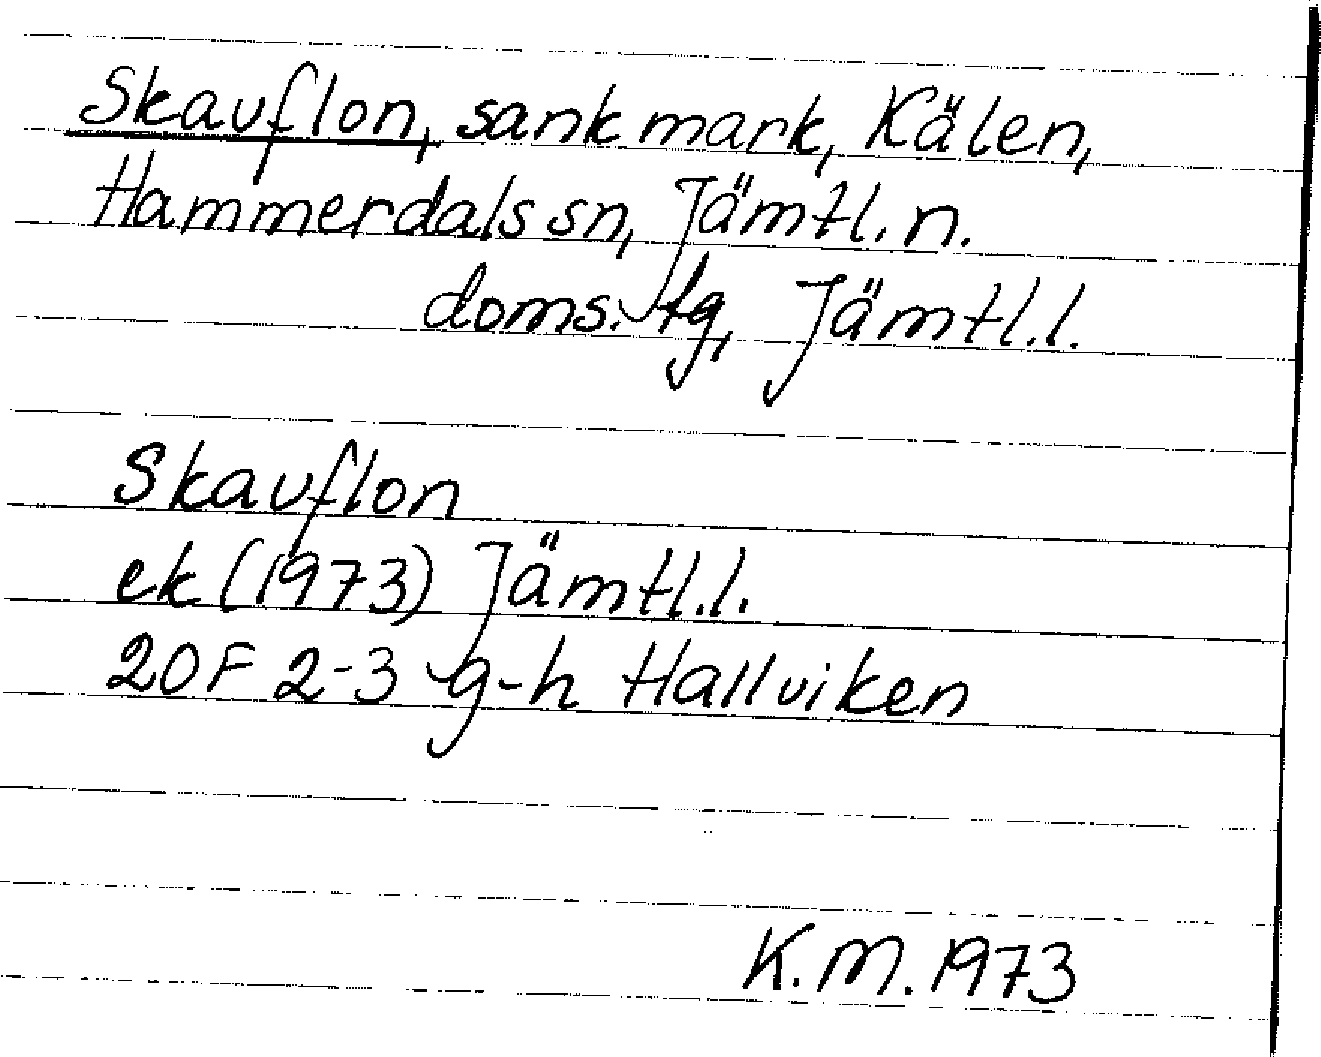 Skauflon, sank mark, Kälen,
Hammerdals sn, Jämtl. n.
doms. tg, Jämtl.l.
Skauflon
ek (1973) Jämtl.l.
20F 2-3 g-h Hallviken
K.M. 1973